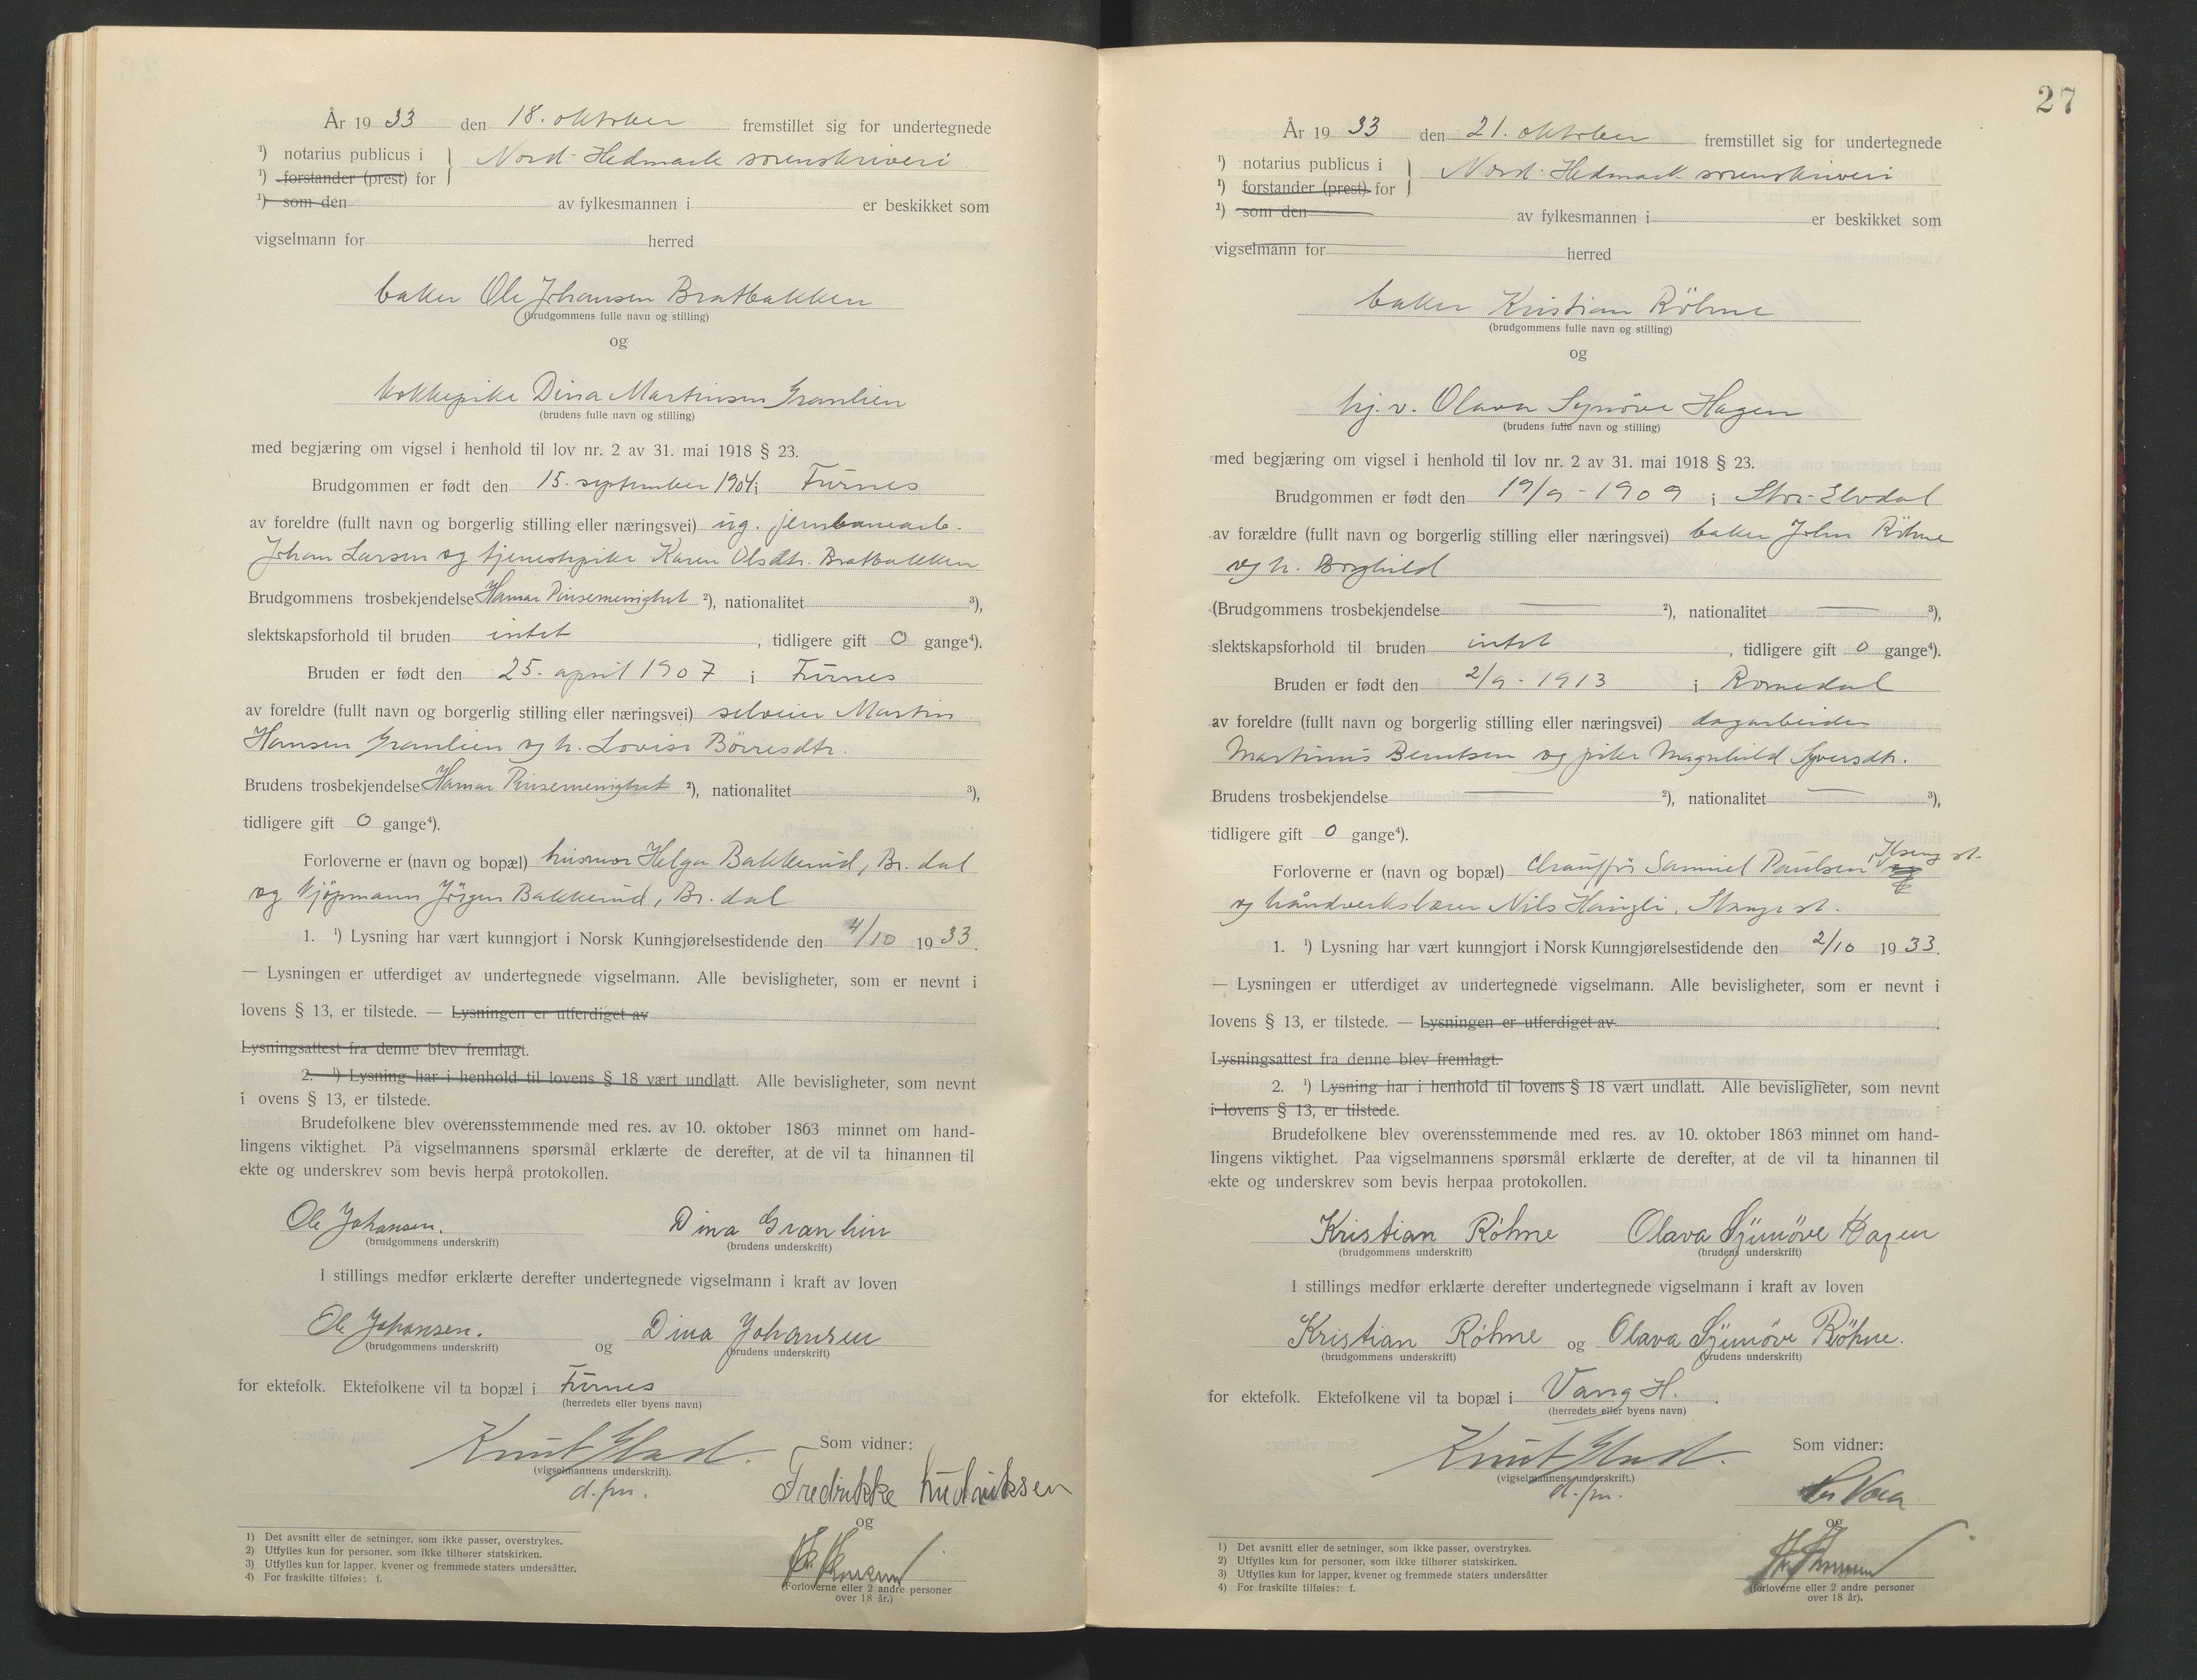 År 19 33 den 18. oktober fremstillet sig for undertegnede
¹) notarius publicus i } Nord-Hedmark sorenskriveri
¹) forstander (prest) for
¹) som den av fylkesmannen i er beskikket som
vigselmann for herred
baker Ole Johansen Bratbakken
(brudgommens fulle navn og stilling)
og
kokkepike Dina Martinsen Granlien
(brudens fulle navn og stilling)
med begjæring om vigsel i henhold til lov nr. 2 av 31. mai 1918 § 23.
Brudgommen er født den 15. september 1904 i Furnes
av foreldre (fullt navn og borgerlig stilling eller næringsvei) ug. jernbanearb.
Johan Larsen og tjenestepike Karen Olsdtr. Bratbakken
Brudgommens trosbekjendelse Hamar Pinsemenighet ²), nationalitet ³),
slektskapsforhold til bruden intet , tidligere gift 0 gange⁴).
Bruden er født den 25. april 1907 i Furnes
av foreldre (fullt navn og borgerlig stilling eller næringsvei) selveier Martin
Hansen Granlien og h. Lovise Børresdtr.
Brudens trosbekjendelse Hamar Pinsemenighet ²), nationalitet ³),
tidligere gift 0 gange⁴).
Forloverne er (navn og bopæl) husmor Helga Bakkerud, Br. dal
og kjøpmann Jörgen Bakkerud, Br. dal
1. ¹) Lysning har vært kunngjort i Norsk Kunngjørelsestidende den 4/10 19 33.
— Lysningen er utferdiget av undertegnede vigselmann. Alle bevisligheter, som er nevnt i
lovens § 13, er tilstede. — Lysningen er utferdiget av
Lysningsattest fra denne blev fremlagt.
2. ¹) Lysning har i henhold til lovens § 18 vært undlatt. Alle bevisligheter, som nevnt
i ovens § 13, er tilstede.
Brudefolkene blev overensstemmende med res. av 10. oktober 1863 minnet om hand-
lingens viktighet. På vigselmannens spørsmål erklærte de derefter, at de vil ta hinannen til
ekte og underskrev som bevis herpå protokollen.
Ole Johansen. Dina Granlien
(brudgommens underskrift) (brudens underskrift)
I stillings medfør erklærte derefter undertegnede vigselmann i kraft av loven
Ole Johansen. og Dina Johansen
(brudgommens underskrift) (brudens underskrift)
for ektefolk. Ektefolkene vil ta bopæl i Furnes
(herredets eller byens navn)
Knut Glad.
(vigselmannens underskrift).
d. fm.
Som vidner:
Fredrikke
og
(Forloverne eller 2 andre personer
over 18 år.)
1) Det avsnitt eller de setninger, som ikke passer, overstrykes.
2) Utfylles kun for personer, som ikke tilhører statskirken.
3) Utfylles kun for lapper, kvener og fremmede staters undersåtter.
4) For fraskilte tilføies: f.
27
År 19 33 den 21. oktober fremstillet sig for undertegnede
¹) notarius publicus i } Nord-Hedmark sorenskriveri
¹) forstander (prest) for
¹) som den av fylkesmannen i er beskikket som
vigselmann for herred
baker Kristian Röhme
(brudgommens fulle navn og stilling)
og
hj. v. Olava Synöve Hagen
(brudens fulle navn og stilling)
med begjæring om vigsel i henhold til lov nr. 2 av 31. mai 1918 § 23.
Brudgommen er født den 19/9 - 1909 i Stor-Elvdal
av forældre (fullt navn og borgerlig stilling eller næringsvei) baker John Röhme
og h. Borghild
(Brudgommens trosbekjendelse — ²), nationalitet — ³),
slektskapsforhold til bruden intet , tidligere gift 0 gange⁴).
Bruden er født den 2/9 - 1913 i Romedal
av foreldre (fullt navn og borgerlig stilling eller næringsvei) dagarbeider
Martinus Berntsen og pike Magnhild Syversdtr.
Brudens trosbekjendelse — ²), nationalitet — ³),
tidligere gift 0 gange⁴).
Forloverne er (navn og bopæl) chauffør Samuel Paulsen, Ilseng st.
og håndverkslærer Nils , Stange st.
1. ¹) Lysning har vært kunngjort i Norsk Kunngjørelsestidende den 2/10 19 33.
— Lysningen er utferdiget av undertegnede vigselmann. Alle bevisligheter, som er nevnt i
lovens § 13, er tilstede. — Lysningen er utferdiget av
Lysningsattest fra denne blev fremlagt.
2. ¹) Lysning har i henhold til lovens § 18 vært undlatt. Alle bevisligheter, som nevnt
i lovens § 13, er tilstede.
Brudefolkene blev overensstemmende med res. av 10. oktober 1863 minnet om hand-
lingens viktighet. Paa vigselmannens spørsmål erklærte de derefter, at de vil ta hinannen til
ekte og underskrev som bevis herpaa protokollen.
Kristian Röhme Olava Synnöve Hagen
(brudgommens underskrift) (brudens underskrift)
I stillings medfør erklærte derefter undertegnede vigselmann i kraft av loven
Kristian Röhme og Olava Synnöve Röhme.
(brudgommens underskrift) (brudens underskrift)
for ektefolk. Ektefolkene vil ta bopæl i Vang H.
(herredets eller byens navn)
Knut Glad.
(vigselmannens underskrift.)
d. fm.
Som vidner:
og
(forloverne eller 2 andre personer
over 18 år).
1) Det avsnitt eller de setninger, som ikke passer, overstrykes.
2) Utfylles kun for personer, som ikke tilhører statskirken.
3) Utfylles kun for lapper, kvener og fremmede staters undersåtter
4) For fraskilte tilføies: f.